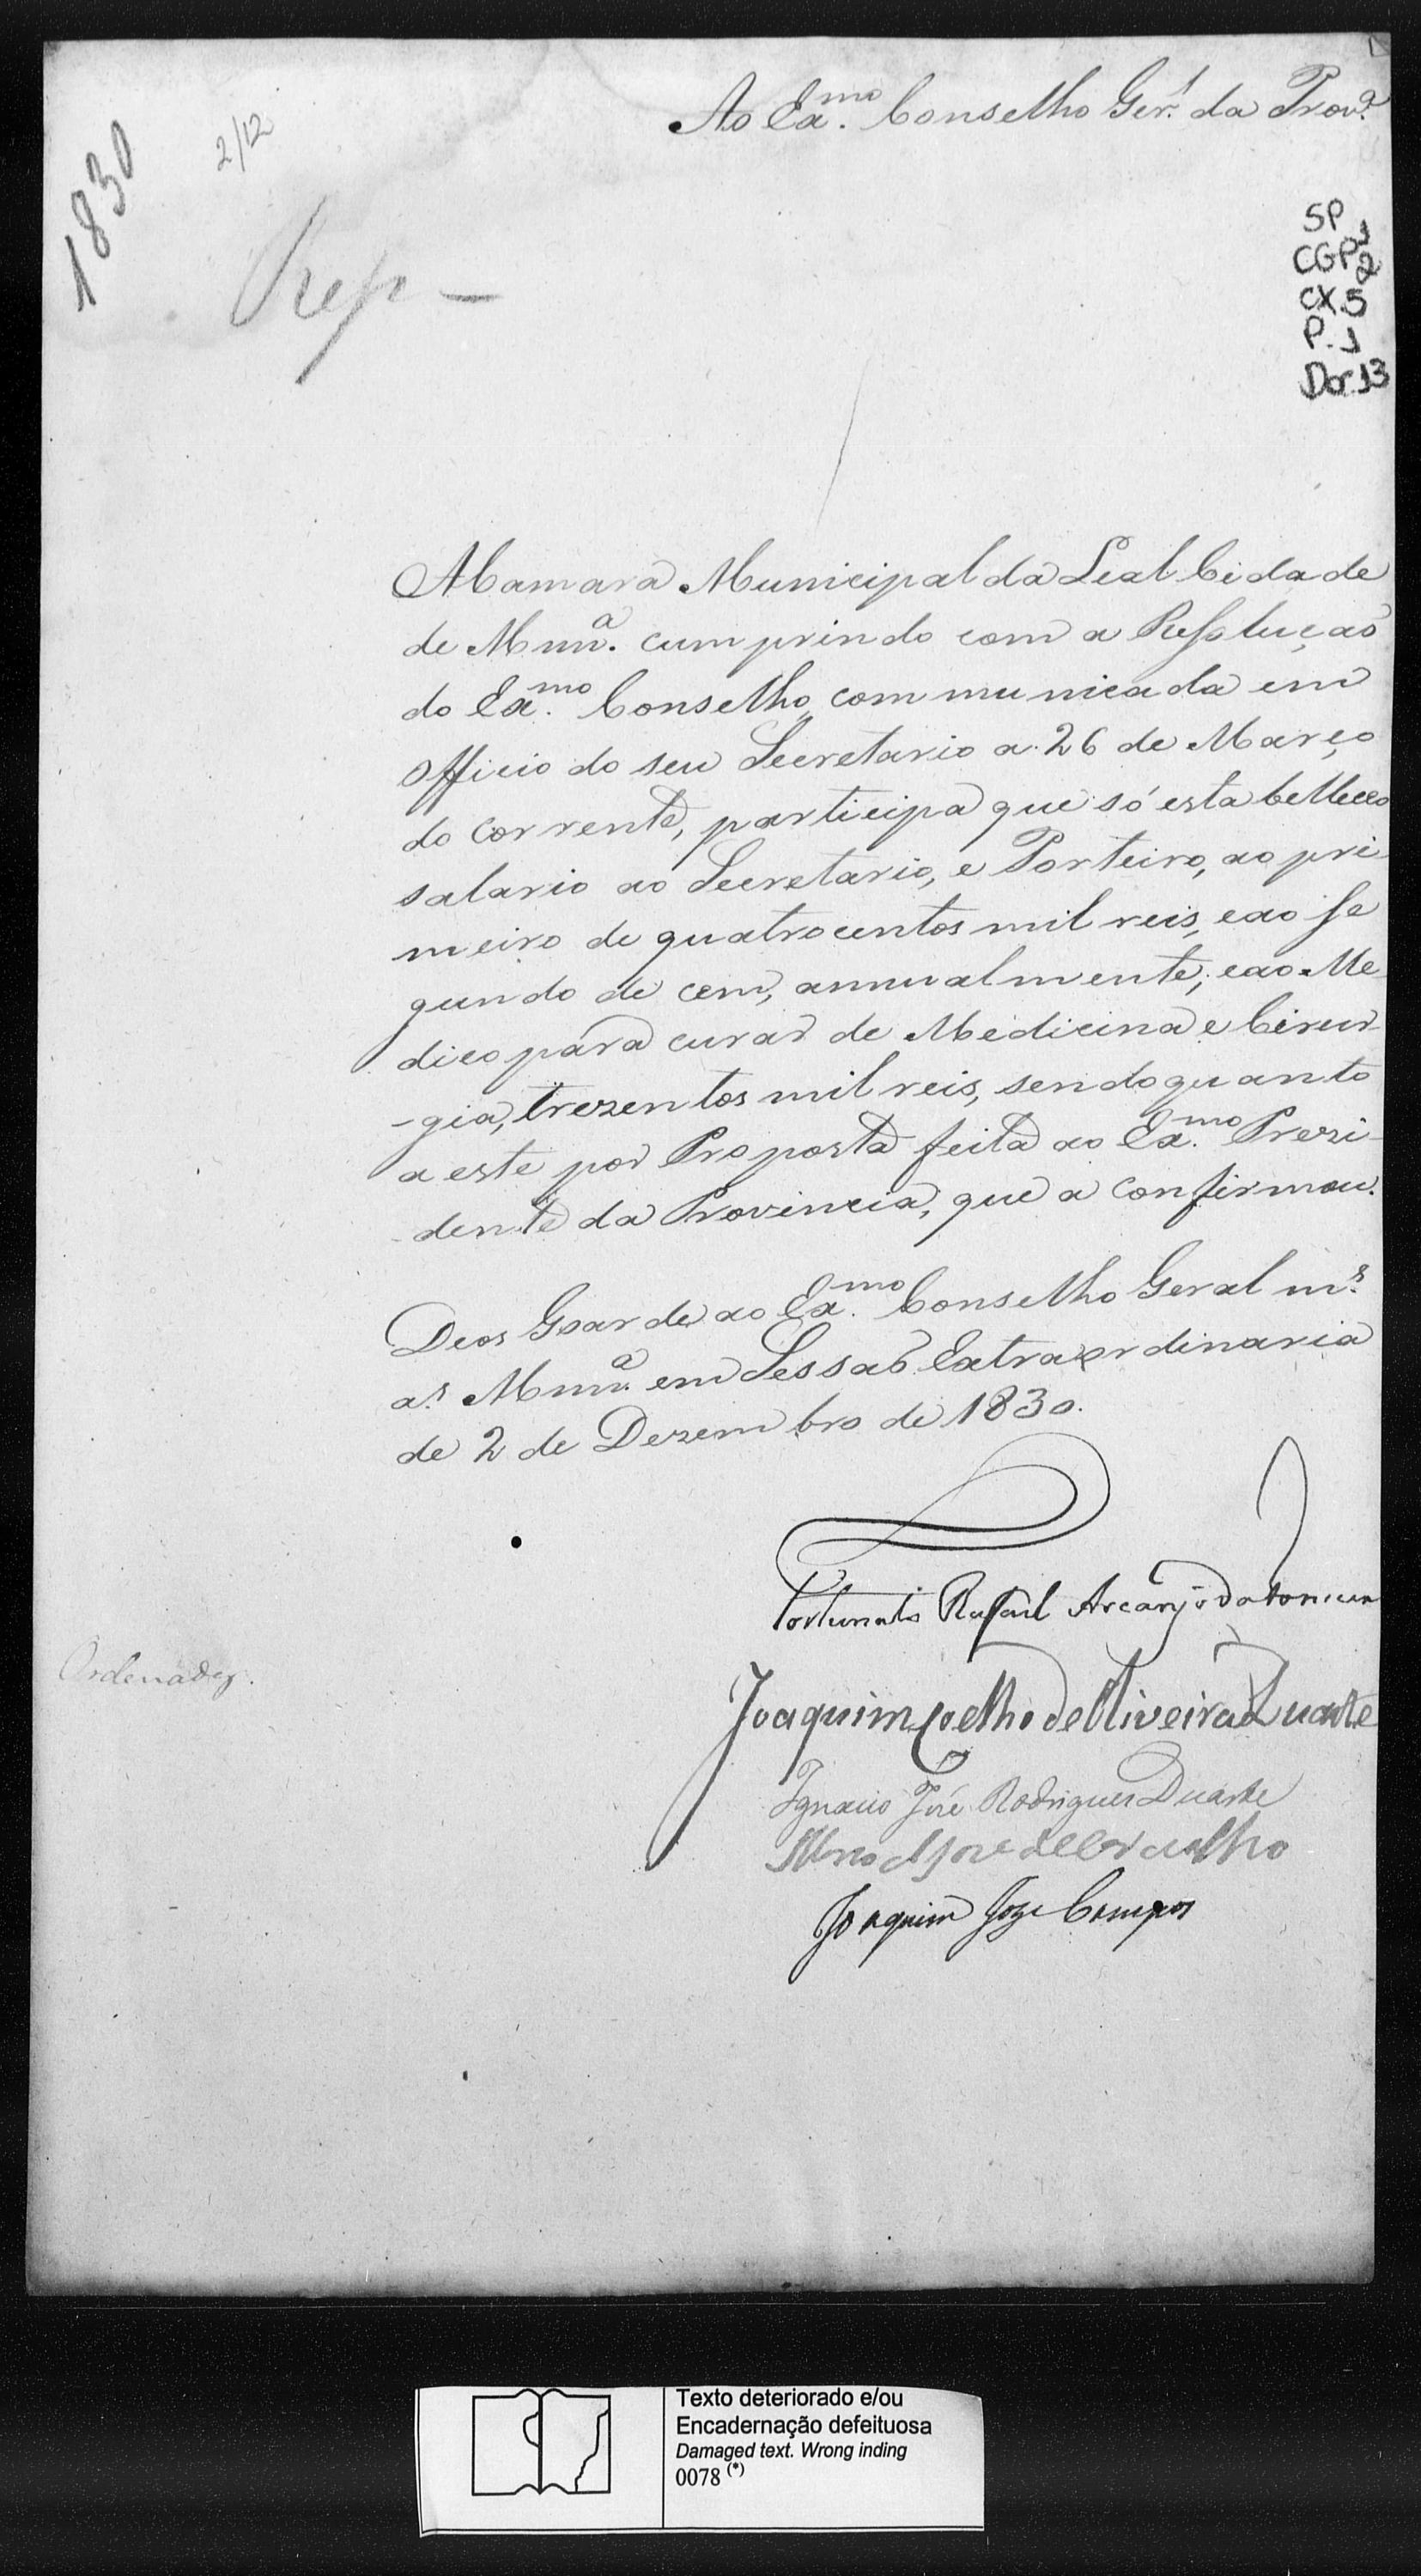 Ao Ex.mo Conselho Ger.l da Prov.a
1830
2/12
Rep -
SP 1
CGP 2
CX.5
P. 1
Doc.13
A Camara Municipal da Leal Cidade
de Mnn.a cumprindo com a Resoluçaõ
do Ex.mo Conselho communicada em
Officio do seu Secretario a 26 de Março
do corrente, participa que só estabelleceo
salario ao Secretario, e Porteiro, ao pri
meiro de quatrocentos mil reis, eao se
gundo de cem, annualmente; eao Me
dico para curar de Medicina e Cirur
-gia, trezentos mil reis, sendo quanto
a este por Proposta feita ao Ex.mo Prezi
dente da Provincia, que a confirmou.
Deos Guarde ao Ex.mo Conselho Geral m.s
a.s Mnn.a em Sessaõ Extraordinaria
de 2 de Dezembro de 1830.
Fortunato Rafael Arcanjo da
Ordenados.
Joaquim Coelho de Oliveira Duarte
Ignacio José Rodrigues Duarte
Joze de Carvalho
Joaquim Joze Campos
Texto deteriorado e/ou
Encadernação defeituosa
Damaged text. Wrong inding
0078 (*)